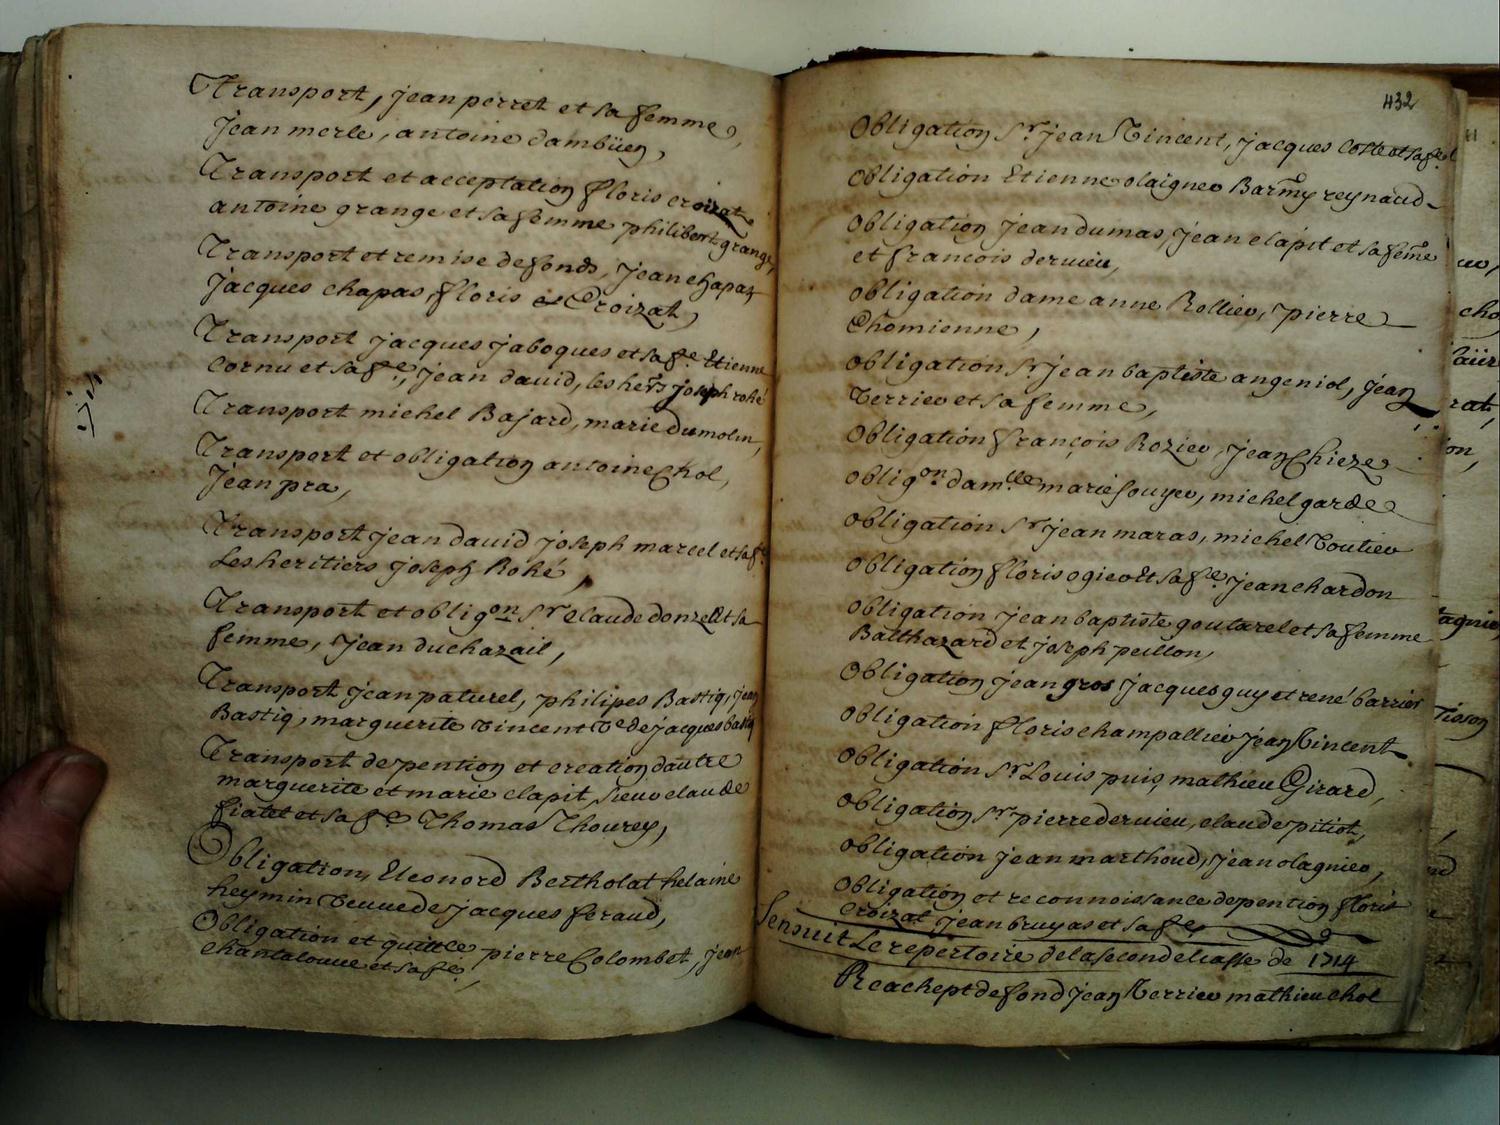 Transport, jean perret et sa femme,
jean merle, antoine dambüen,
Transport et acceptation floris croizat
antoine grange et sa femme philibert grange,
Transport et remise de fonds, jean chapas
jacques chapas, floris Croizat,
Transport jacques jaboques et sa fe Etienne
Cornu et sa fe, jean david, les hers joseph rohé
Transport michel Bajard, marie dumolin,
Transport et obligation antoine Chol,
jean pra,
Transport jean david joseph marcel et sa fe
Les heritiers joseph Rohé,
Transport et obligon Sr claude donzel et sa
femme, jean duchazail,
Transport jean paturel, philipes Bastig, jean
Bastig, marguerite vincent ve de jacques bastig
Transport de pention et creation dautre
marguerite et marie clapit, sieur claude
fiatet et sa fe Thomas Thourey,
Obligation, Eleonord Bertholat helaine
heymin veuve de jacques feraud,
Obligation et quittce pierre Colombet, jean
chantaloue et sa fe,
432
Obligation Sr jean Vincent, jacques Coste et sa fe
Obligation Etienne olaignee Barmy reynaud
Obligation jean dumas, jean clapit et sa feme
et françois dervieu,
obligation dame anne Rollien, pierre
Chomienne,
obligation Sr jean baptiste angeniol, jean
Verrier et sa femme,
Obligation françois Rozier, jean Chieze
obligon damlle marie souyer, michel garde
obligation Sr jean maras, michel Toutier
obligation floris ogier et sa fe jean chardon
obligation jean baptiste goutarel et sa femme
Balthazard et joseph peillon,
Obligation jean gros jacques guy et rené barrier
obligation floris champallier jean Vincent
Obligation Sr Louis puis mathieu Girard,
obligation Sr pierre dervieu, claude pitiot,
obligation jean marthoud, jean olagnier,
Obligation et reconnoissance de pention floris
Croizat, jean bruyas et sa fe
Sensuit Le repertoire de la seconde liasse de 1714
Reachept de fond jean Verrier mathieu chol